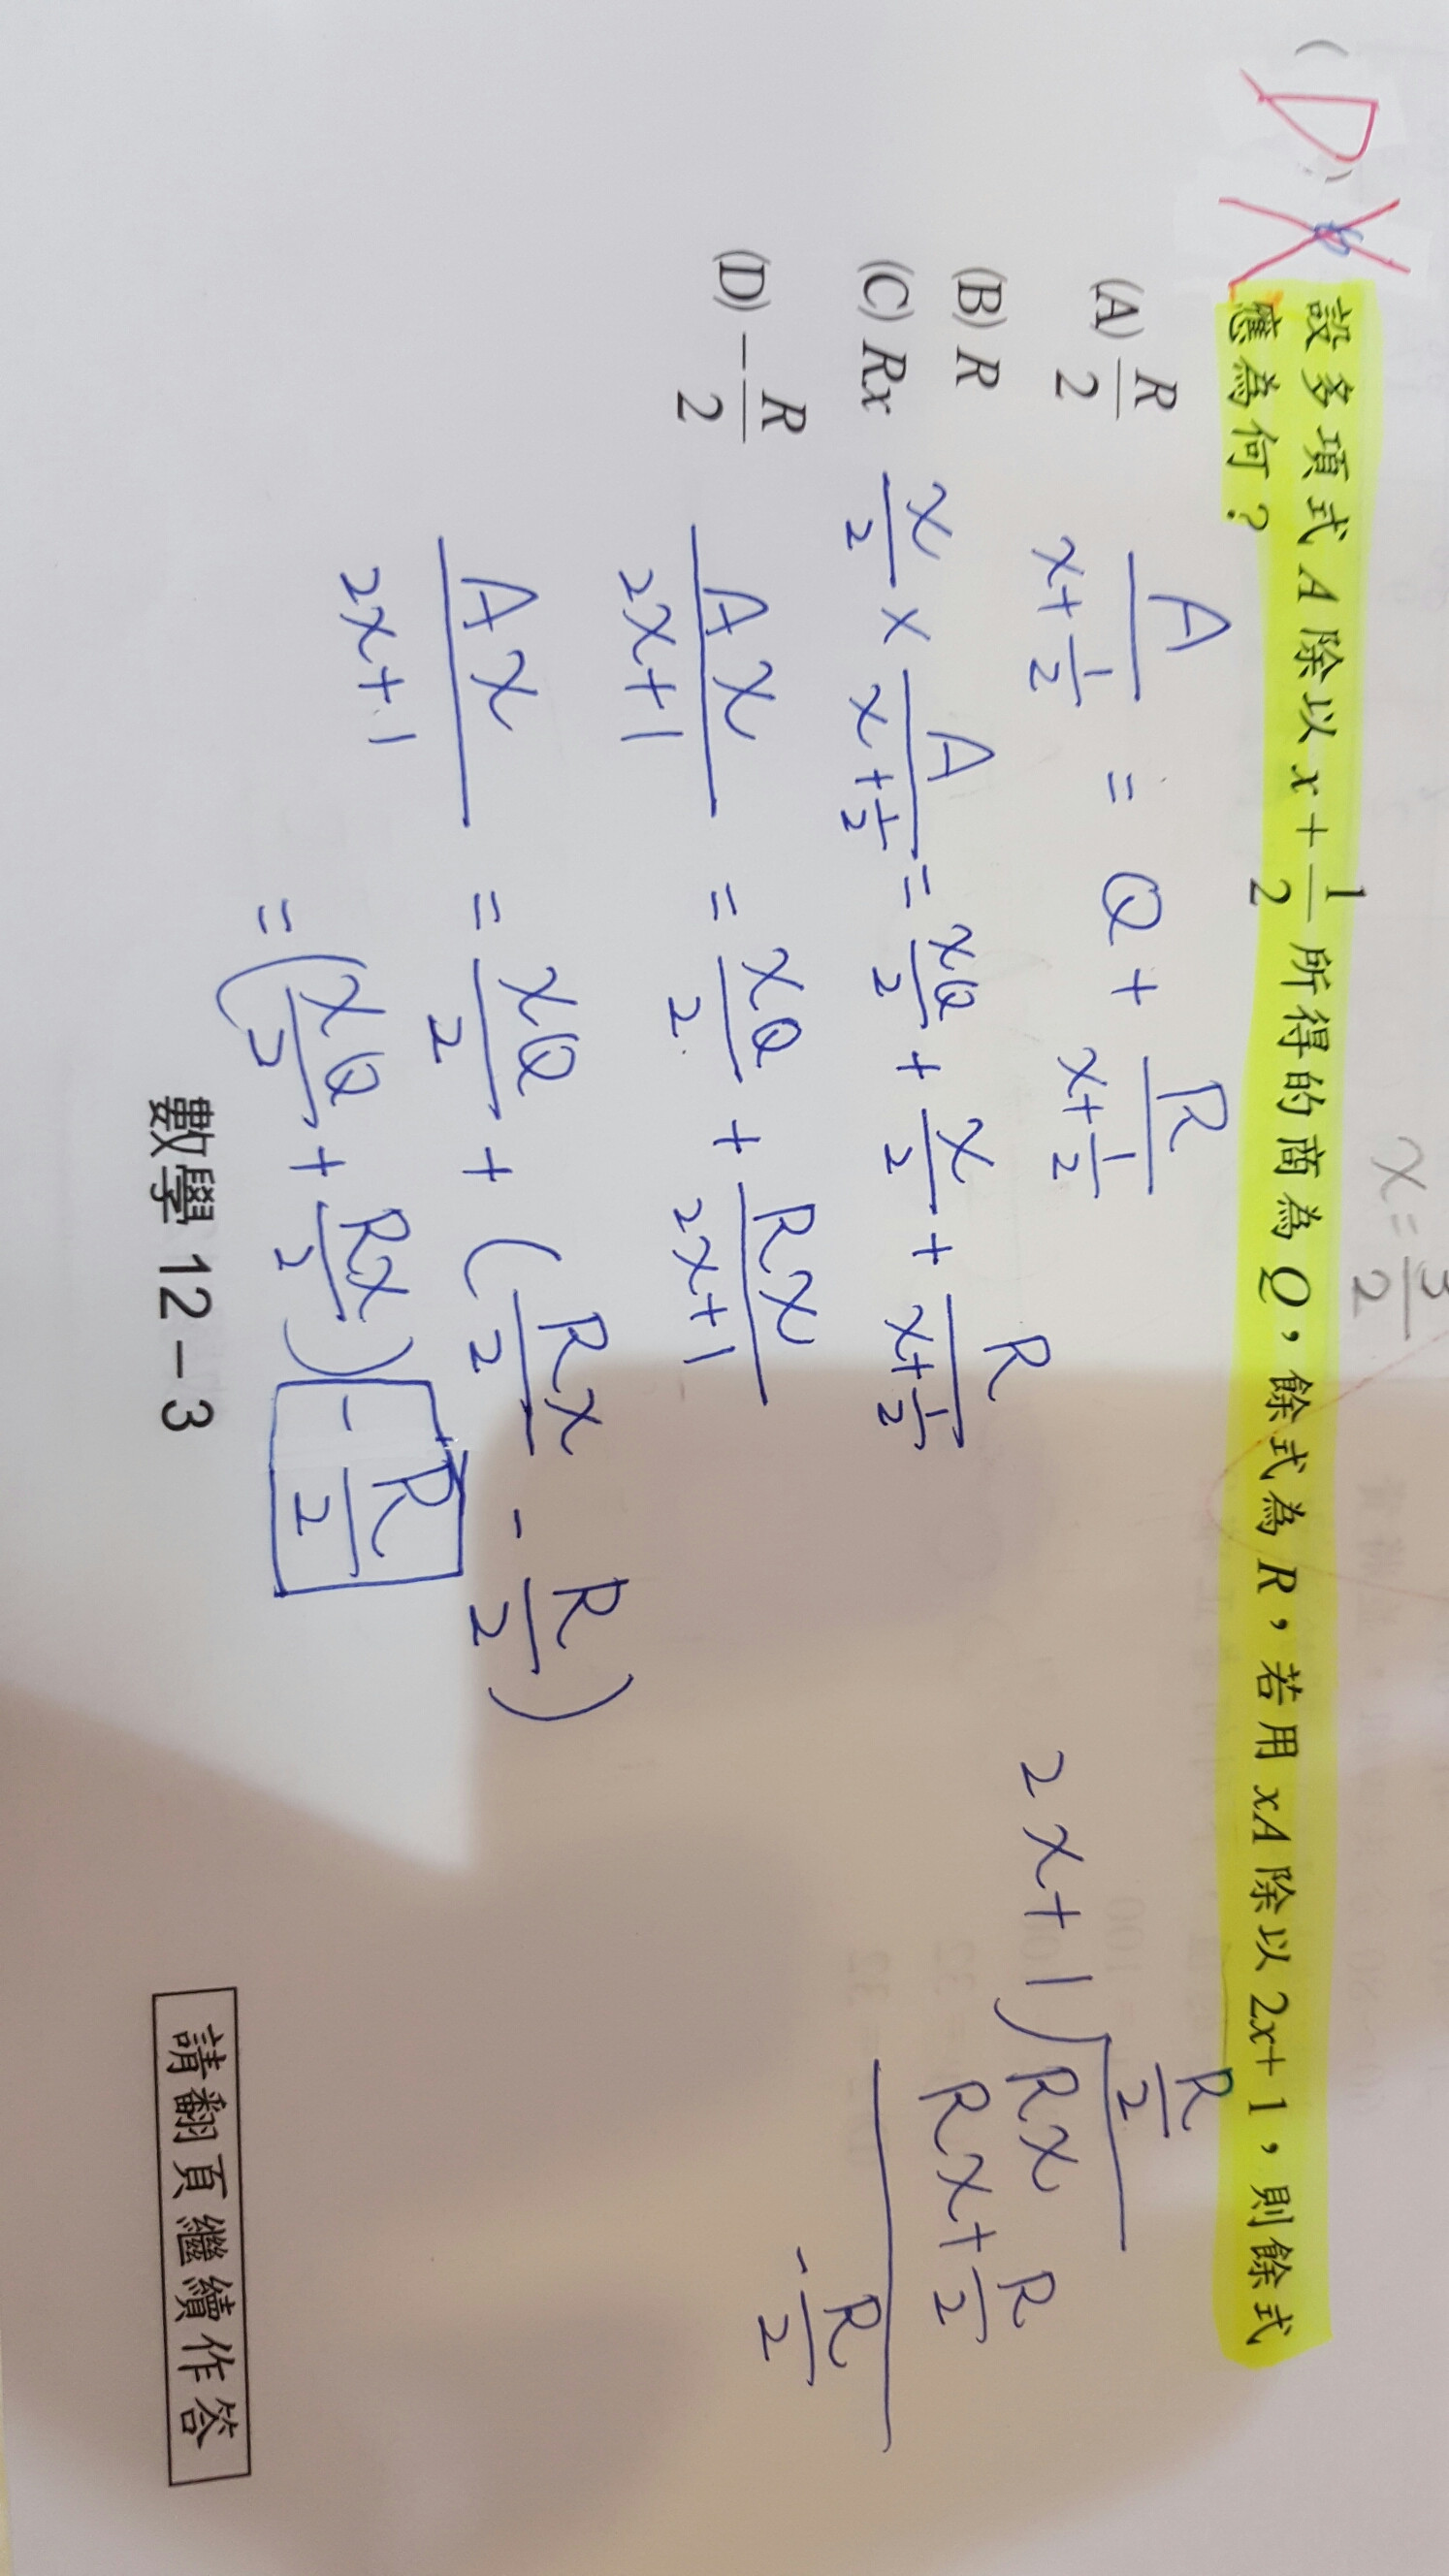 x = 3/2
( D )
設多項式 A 除以 x + 1/2 所得的商為 Q,餘式為 R,若用 xA 除以 2x+1,則餘式
應為何?
(A) R/2
(B) R
(C) Rx
(D) -R/2
A/(x+1/2) = Q + R/(x+1/2)
x/2 × A/(x+1/2) = xQ/2 + x/2 + R/(x+1/2)
Ax/(2x+1) = xQ/2 + Rx/(2x+1)
Ax/(2x+1) = xQ/2 + (Rx/2 - R/2)
= (xQ/2 + Rx/2) -R/2
R/2
2x+1 ) Rx
Rx + R/2
-R/2
數學 12 - 3
請翻頁繼續作答